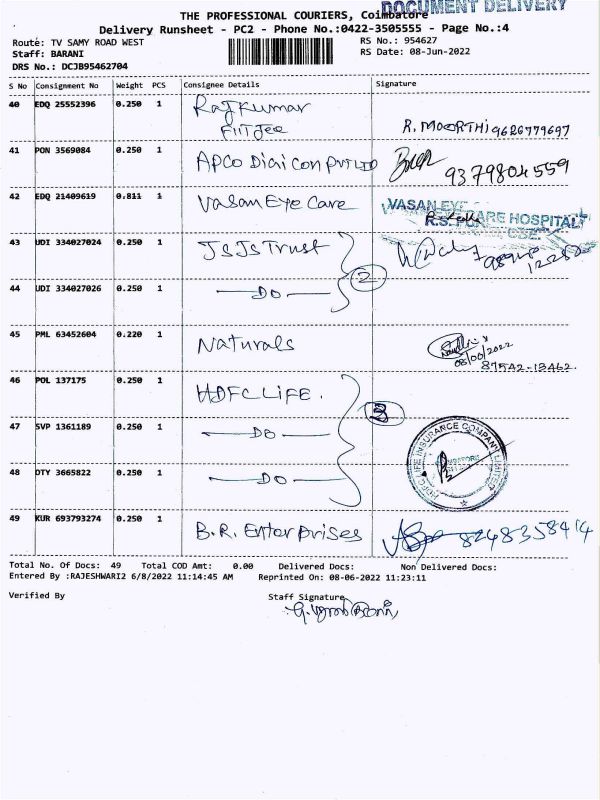 DOCUMENT DELIVERY
THE PROFESSIONAL COURIERS, Coimbatore
Delivery Runsheet - PC2 - Phone No.:0422-3505555 - Page No.:4
Route: TV SAMY ROAD WEST
RS No.: 954627
Staff: BARANI
RS Date: 08-Jun-2022
DRS No.: DCJB95462704
S No Consignment No Weight PCS Consignee Details Signature
40 EDQ 25552396 0.250 1 Rajkumar
FIITJee R.MOORTHi 9626779697
41 PON 3569084 0.250 1 APCO Digicon PVT LTD 9379804559
42 EDQ 21409619 0.811 1 Vasan Eye Care VASAN EYE CARE HOSPITAL
43 UDI 334027024 0.250 1 JSJS Trust
2
44 UDI 334027026 0.250 1 DO
45 PML 63452604 0.220 1 Naturals
87542-13462
46 POL 137175 0.250 1 HDFC LIFE.
3
47 SVP 1361189 0.250 1 DO
HDFC LIFE INSURANCE COMPANY LIMITED
48 DTY 3665822 0.250 1 DO
49 KUR 693793274 0.250 1 B.R. Enterprises 8248358414
Total No. Of Docs: 49 Total COD Amt: 0.00 Delivered Docs: Non Delivered Docs:
Entered By :RAJESHWARI2 6/8/2022 11:14:45 AM Reprinted On: 08-06-2022 11:23:11
Verified By Staff Signature